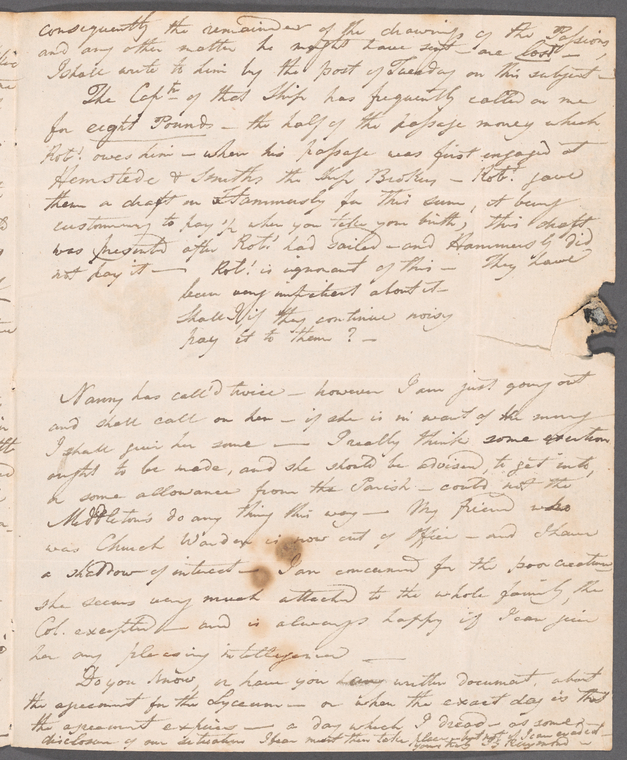 consequently the remainder of the drawings of the Passions,
and any other matter he might have sent are lost —
I shall write to him by the post of Tuesday on this subject —
The Captn of that Ship has frequently called on me
for eight Pounds — the half of the passage money which
Robt. owes him — when his passage was first engaged at
Hemstede & Smiths the Ship Brokers — Robt. gave
them a draft on Hammersly for this sum, it being
customary to pay ½ when you take your birth, this draft
was presented after Robt. had sailed — and Hammersly did
not pay it — Robt. is ignorant of this — They have
been very impatient about it
shall I if they continue noisy
pay it to them ? —
Nanny has call'd twice — however I am just going out
and shall call on her — if she is in want of the money
I shall give her some — I really think some exertion
ought to be made, and she should be advised, to get into,
or some allowance from the Parish — could not the
Middleton's do any thing this way — My friend who
was Church Warden is now out of office — and I have
a shaddow of interest — I am concerned for the poor creature
she seems very much attached to the whole family, the
Col. excepted — and is always happy if I can give
her any pleasing intelligence —
Do you know or have you any written document about
the agreement for the Lyceum — or when the exact day is that
the agreement expires — a day which I dread — as some
disclosure of our situation I fear must then take place — but not if I can avoid —
yours truly